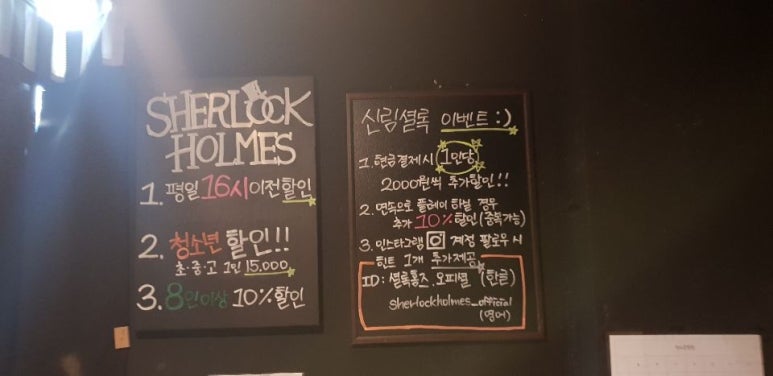 SHERLOCK
HOLMES
1. 평일 16시이전할인
2. 청소년 할인!!
초·중·고 1인 15.000
3. 8인이상 10%할인
신림셜록 이벤트 :)
1. 현금결제시 1인당
2000원씩 추가할인!!
2. 연속으로 플레이 하실 경우
추가 10%할인(중복가능)
3. 인스타그램 계정 팔로우 시
힌트 1개 추가제공
ID: 셜록홈즈.오피셜 (한글)
sherlockholmes_official
(영어)